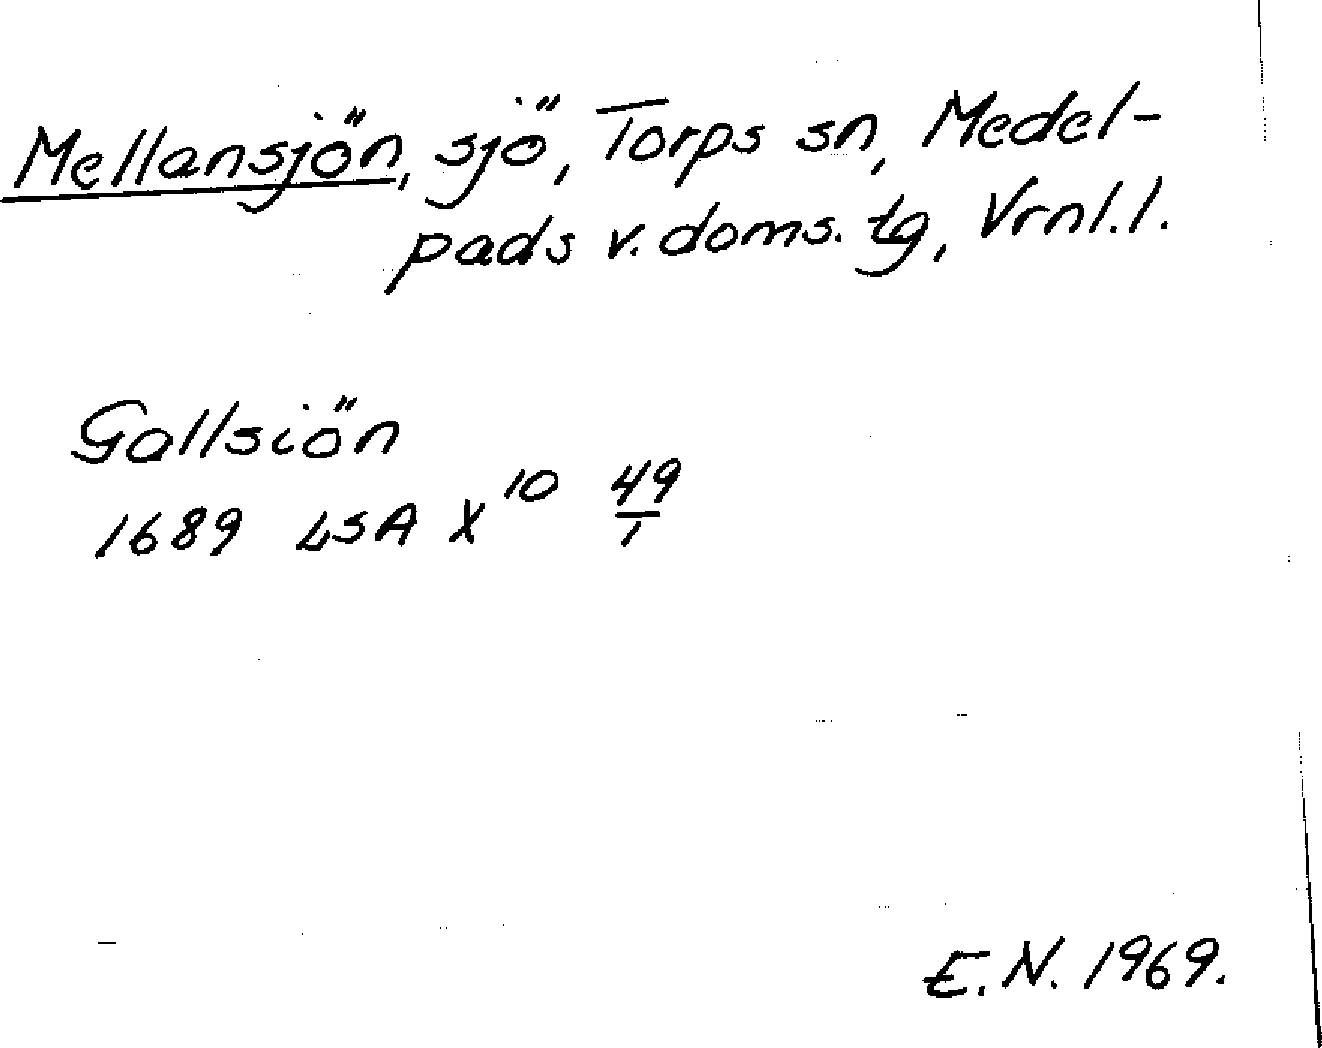 Mellansjön, sjö, Torps sn, Medel-
pads v. doms. tg, Vrnl. l.
Gallsiön
1689 LSA X 10 49/1
E. N. 1969.